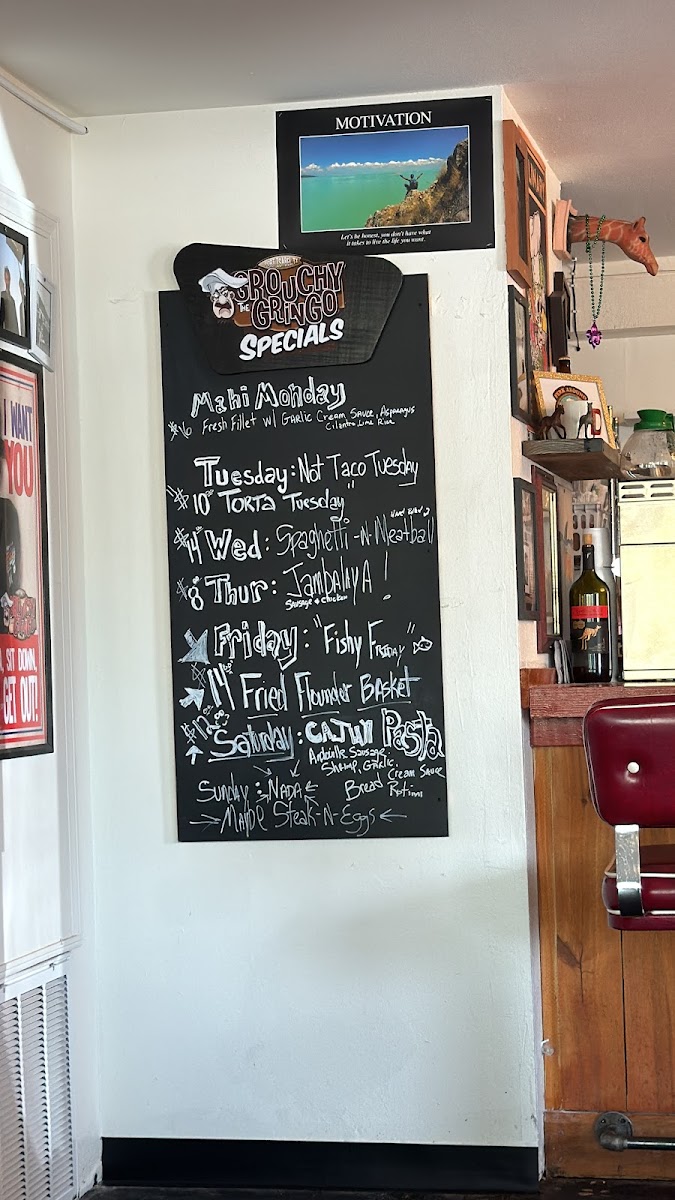 MOTIVATION
Let's be honest, you don't have what
it takes to live the life you want.
THE GROUCHY
GRINGO
SPECIALS
Mahi Monday
$16 Fresh Fillet w/ Garlic Cream Sauce, Asparagus
Cilantro Lime Rice
Tuesday: Not Taco Tuesday
$10 "Torta Tuesday"
$14 Wed: Spaghetti-N-Meatball
$8 Thur: JAMBALAYA!
Sausage + Chicken
Friday: "Fishy Friday"
14 Fried Flounder BASKET
$12 Saturday: CAJUN Pasta
Sausage
Shrimp, Garlic,
Cream Sauce
Bread
Sunday: NADA
Maybe Steak-N-Eggs
I WANT
YOU
SIT DOWN,
GET OUT!